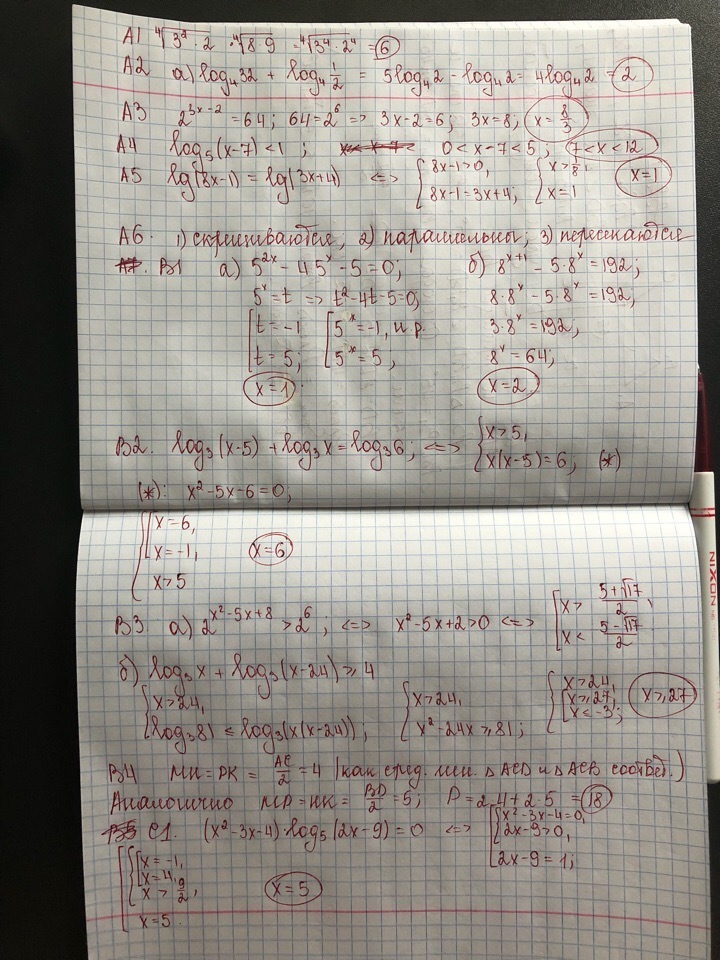 A1 ∜(3²·2) · ∜(8·9) = ∜(3⁴·2⁴) = 6
A2 а) log₄32 + log₄ 1/2 = 5log₄2 - log₄2 = 4log₄2 = 2
A3 2^(3x-2) = 64; 64 = 2⁶ => 3x-2=6; 3x=8; x = 8/3
A4 log₅(x-7) < 1; 0 < x-7 < 5; 7 < x < 12
A5 lg(8x-1) = lg(3x+4) <=> { 8x-1>0, 8x-1=3x+4; { x > 1/8, x=1 x=1
A6. 1) скрещиваются, 2) параллельны; 3) пересекаются
B1 а) 5^(2x) - 4·5^x - 5 = 0; б) 8^(x+1) - 5·8^x = 192;
5^x = t => t²-4t-5=0; 8·8^x - 5·8^x = 192,
[ t = -1 [ 5^x = -1, н.р. 3·8^x = 192;
t = 5; 5^x = 5, 8^x = 64;
x=1 x=2
B2. log₃(x-5) + log₃x = log₃6; <=> { x>5, x(x-5) = 6, (*)
(*): x²-5x-6=0;
{ [ x=6,
x=-1, x=6
x>5
B3. а) 2^(x²-5x+8) > 2⁶; <=> x²-5x+2>0 <=> [ x > (5+√17)/2, x < (5-√17)/2
б) log₃x + log₃(x-24) ⩾ 4
{ x>24, { x>24, { x>24, [ x⩾27, x⩾27
log₃81 ⩽ log₃(x(x-24)); x²-24x ⩾ 81; x⩽-3;
B4 MN = PK = AC/2 = 4 (как сред. лин. △ACD и △ACB соответ.)
Аналогично MP = NK = BD/2 = 5; P = 2·4 + 2·5 = 18
C1. (x²-3x-4)·log₅(2x-9) = 0 <=> [ { x²-3x-4=0, 2x-9>0, 2x-9=1;
[ { [ x=-1,
x=4,
x > 9/2, x=5
x=5.
NIXON